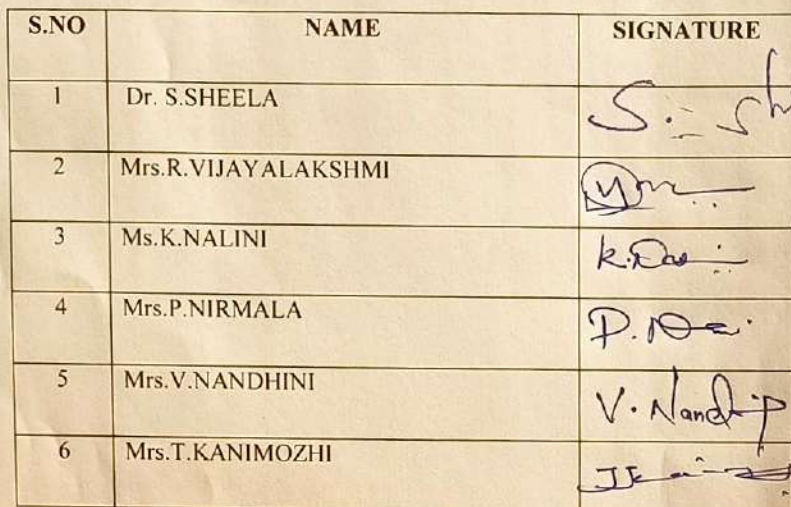 S.NO NAME SIGNATURE
1 Dr. S.SHEELA S. Sh
2 Mrs.R.VIJAYALAKSHMI
3 Ms.K.NALINI
4 Mrs.P.NIRMALA
5 Mrs.V.NANDHINI V. Nandhi
6 Mrs.T.KANIMOZHI